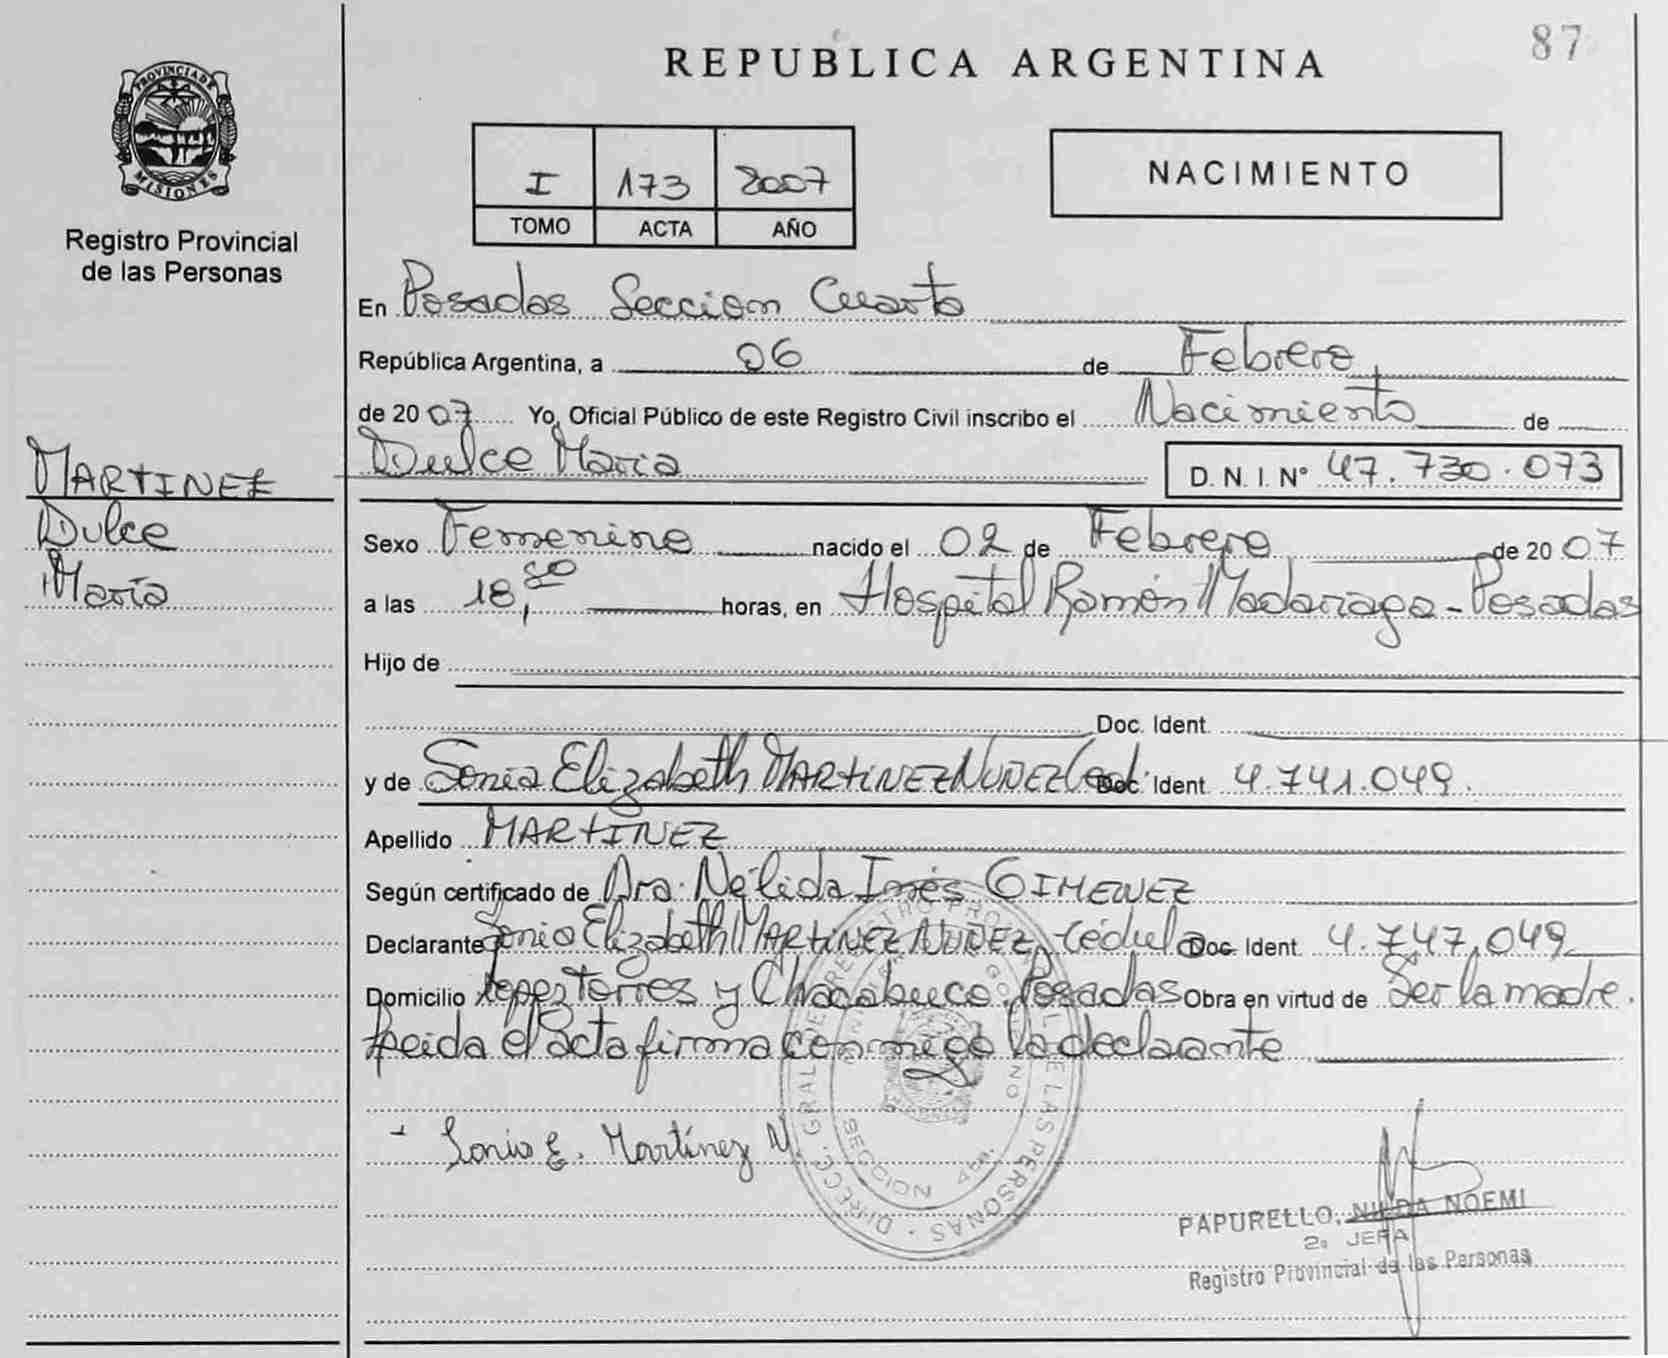 87
REPUBLICA ARGENTINA
PROVINCIA DE
MISIONES
Registro Provincial
de las Personas
I 173 2007
TOMO ACTA AÑO
NACIMIENTO
En Posadas Seccion Cuarta
República Argentina, a 06 de Febrero
de 20 07 Yo, Oficial Público de este Registro Civil inscribo el Nacimiento de
Dulce Maria D.N.I. N° 47.730.073
MARTINEZ
Dulce
María
Sexo Femenino nacido el 02 de Febrero de 20 07
a las 18, horas, en Hospital Ramón Madariaga - Posadas
Hijo de
Doc. Ident.
y de Sonia Elizabeth MARTINEZ NUÑEZ Ced. Doc. Ident. 4.741.049.
Apellido MARTINEZ
Según certificado de Dra. Nélida Inés GIMENEZ
Declarante Sonia Elizabeth MARTINEZ NUÑEZ - Cédula Doc. Ident. 4.747.049
Domicilio Lopez Torres y Chacabuco. Posadas Obra en virtud de Ser la madre.
Leida el acta firma conmigo la declarante
- Sonia E. Martínez N
DIRECC. GRAL. DE REGISTRO PROVINCIAL DE LAS PERSONAS
SECCION 4ta.
PAPURELLO, NILDA NOEMI
2a JEFA
Registro Provincial de las Personas